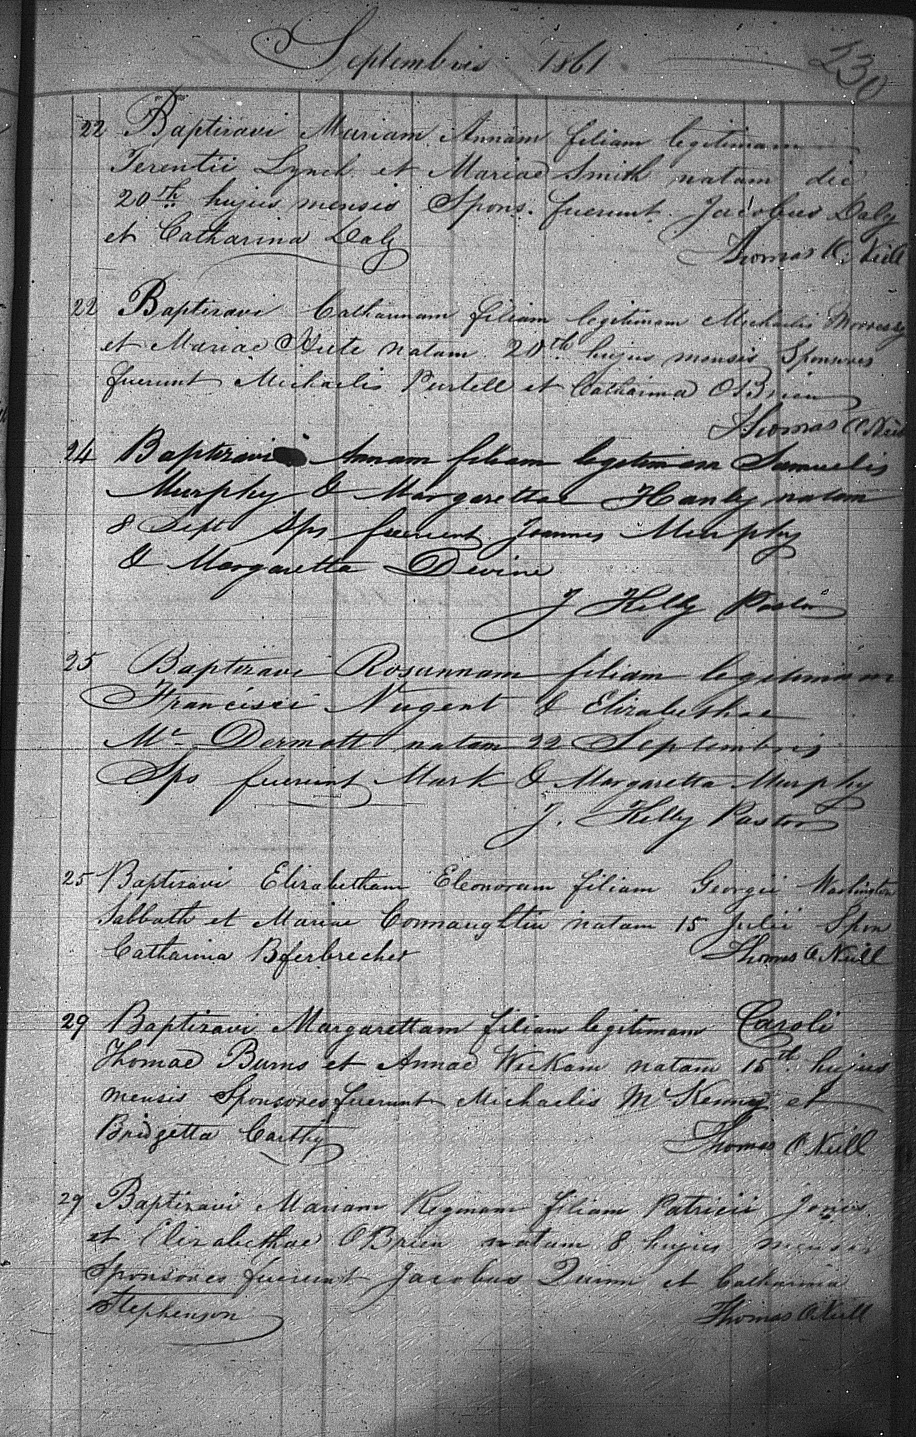 Septembris 1861.
230
22 Baptizavi Mariam Annam filiam legitimam
Terentii Lynch et Mariae Smith natam die
20th hujus mensis Spons. fuerunt Jacobus Daly
et Catharina Daly
Thomas O'Neill
22 Baptizavi Catharinam filiam legitimam Michaelis Morrissey
et Mariae natam 20th hujus mensis Sponsores
fuerunt Michaelis Purtell et Catharina O'Brien
Thomas O'Neill
24 Baptizavi Annam filiam legitimam Samuelis
Murphy & Margarettae Hanly natam
8 Sept Sps fuerunt Joannes Murphy
& Margaretta Devine
J Kelly Pastor
25 Baptizavi Rosannam filiam legitimam
Francisci Nugent & Elizabethae
Mc Dermott natam 22 Septembris
Sps fuerunt Mark & Margaretta Murphy
J. Kelly Pastor
25 Baptizavi Elizabetham Eleonoram filiam Georgii Washington
Sabbath et Mariae Connaughtin natam 15 Julii Spon
Catharina
Thomas O'Neill
29 Baptizavi Margarettam filiam legitimam Caroli
Thomae Burns et Annae Wickam natam 15th hujus
mensis Sponsores fuerunt Michaelis McKenny et
Bridgetta Carthy
Thomas O'Neill
29 Baptizavi Mariam Reginam filiam Patricii
et Elizabethae OBrien natam 8 hujus mensis
Sponsores fuerunt Jacobus Quinn et Catharina
Stephenson
Thomas O'Neill